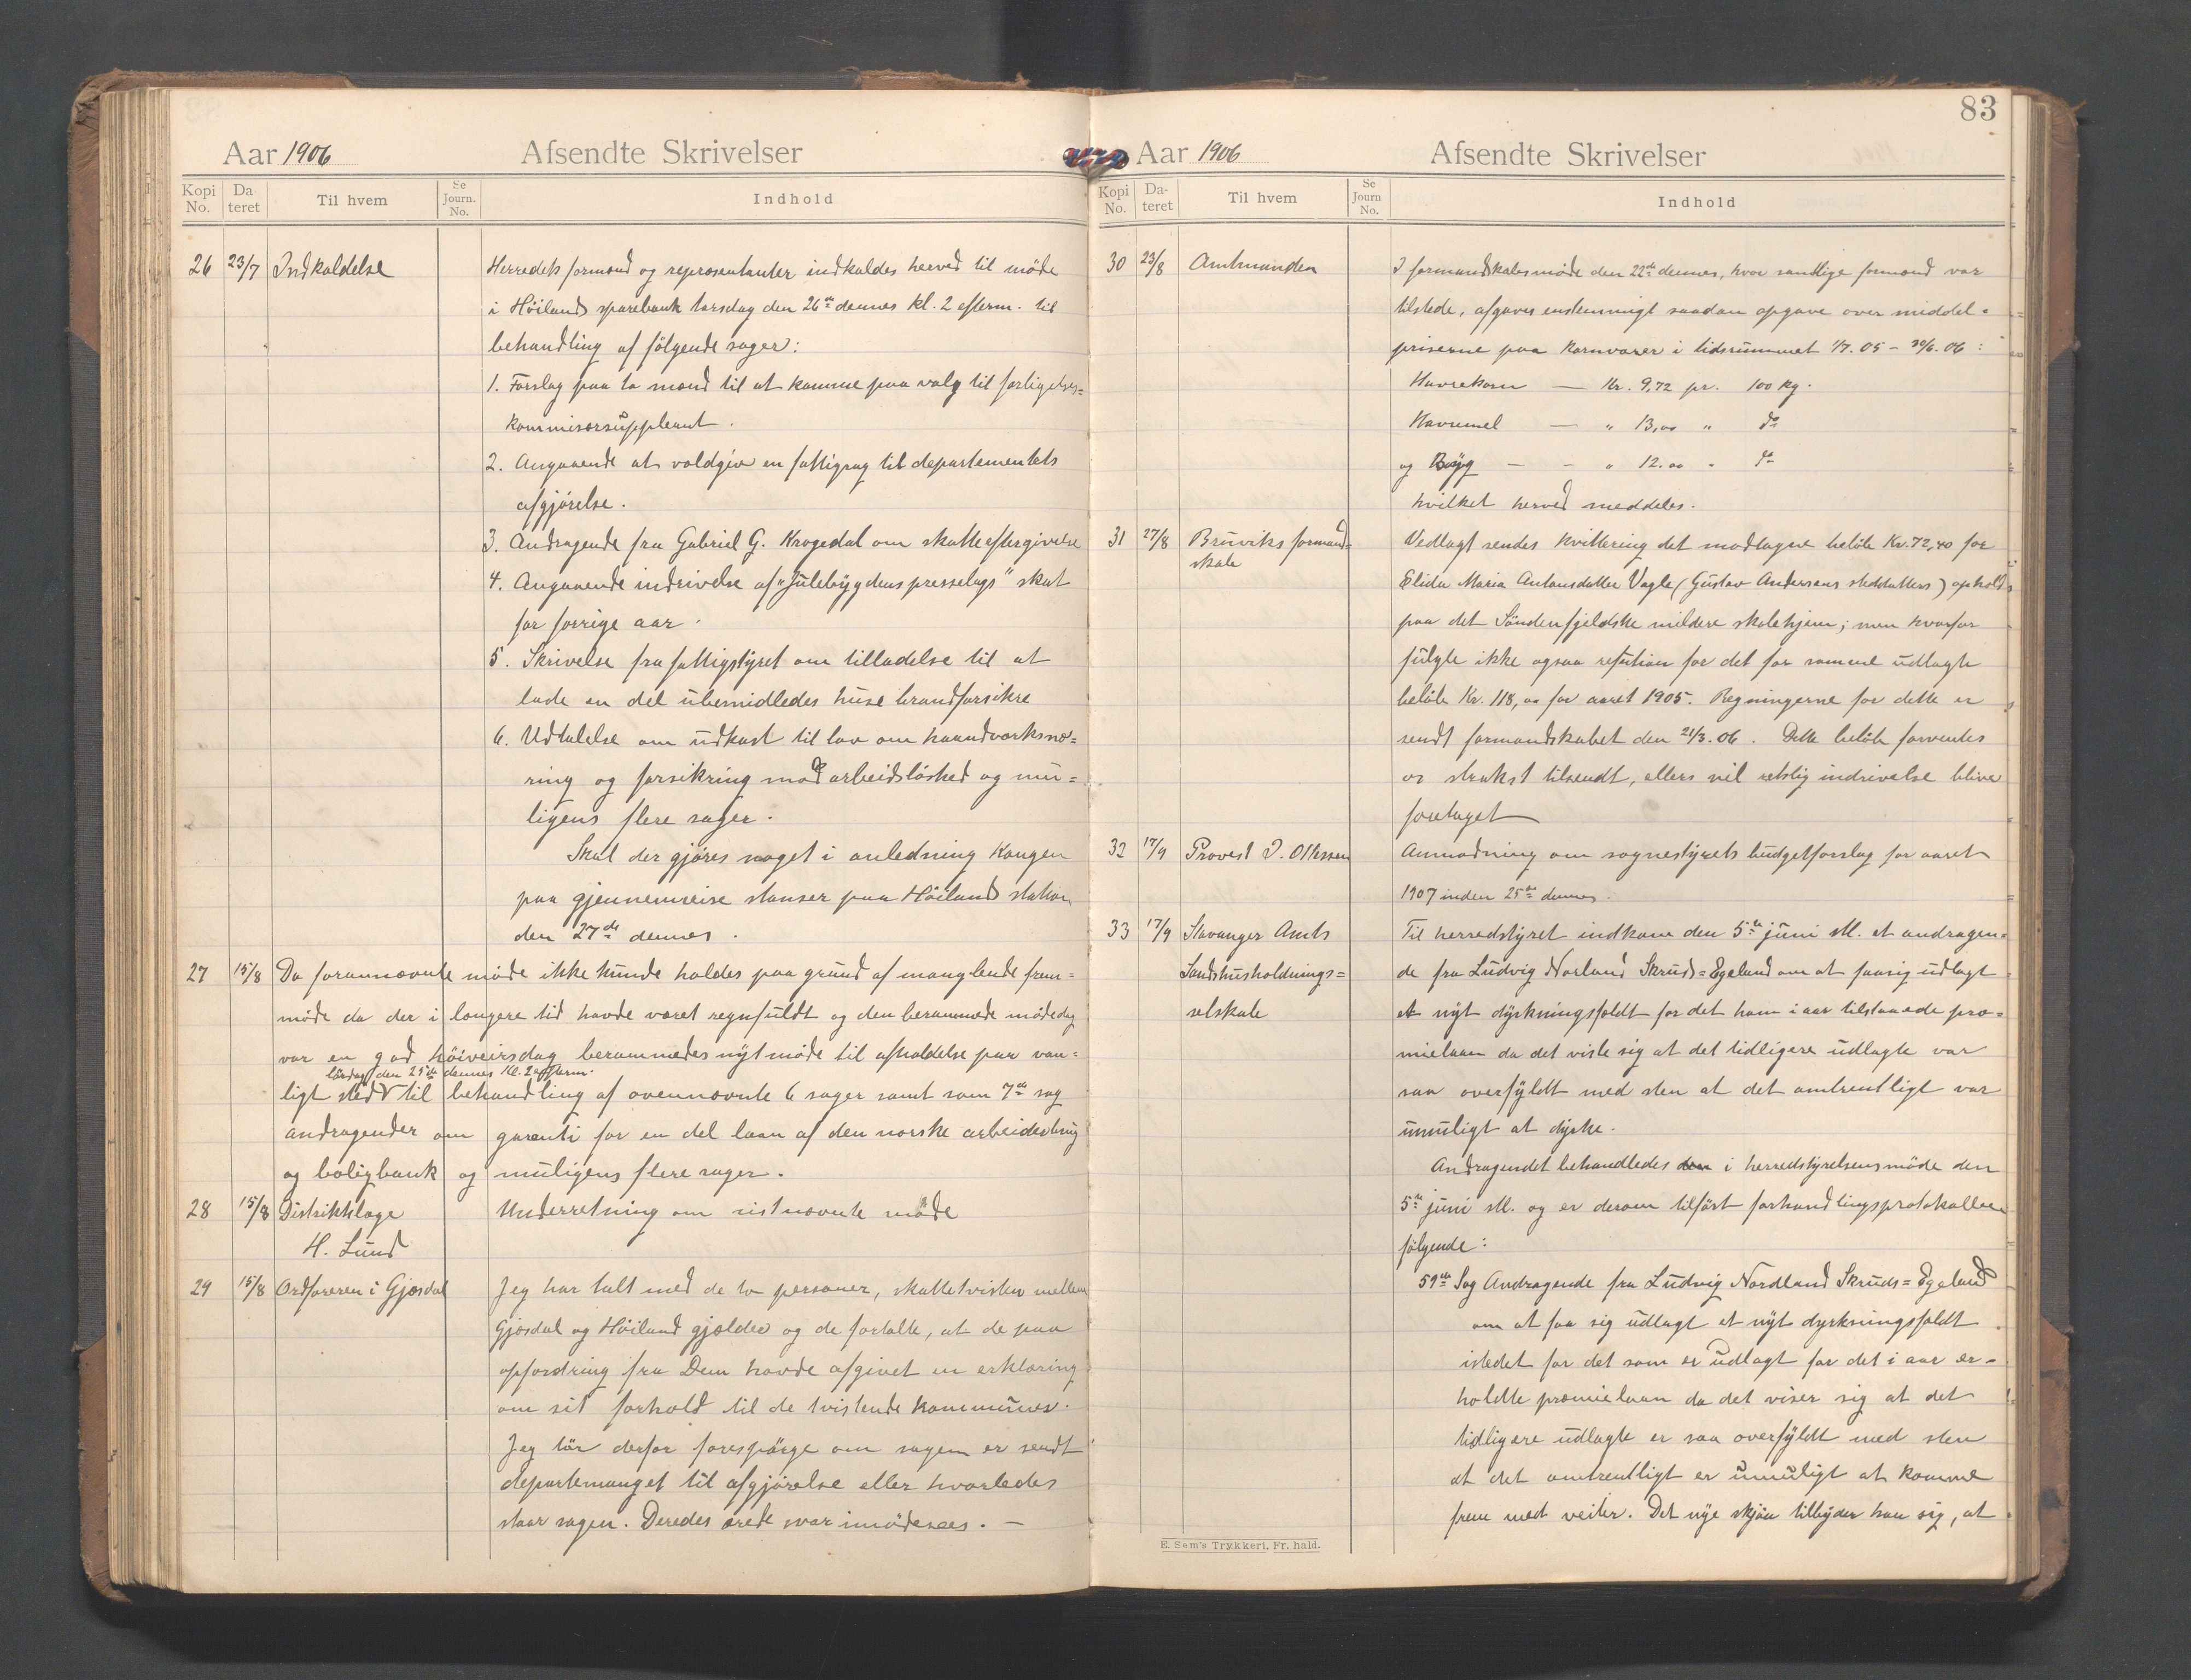 Aar 1906 Afsendte Skrivelser
Kopi No. Da teret Til hvem Se Journ. No. Indhold
26 23/7 Indkaldelse Herredets formænd og repræsentanter indkaldes herved til möde
i Höilands sparebank torsdag den 26de dennes kl. 2 efterm. til
behandling af fölgende sager:
1. Forslag paa to mænd til at komme paa valg til forligelses=
kommisærsuppleant.
2. Angaaende at voldgive en fattigsag til departementets
afgjörelse.
3. Andragende fra Gabriel G. Krogedal om skatteeftergivelse
4. Angaaende indrivelse af "Julebygdens presselags" skat
for forrige aar.
5. Skrivelse fra fattigstyret om tilladelse til at
lade en del ubemidledes huse brandforsikre
6. Udtalelse om udkast til lov om haandværksnæ=
ring og forsikring mod arbeidslöshed og mu=
ligens flere sager.
Skal der gjöres noget i anledning Kongen
paa gjennemreise stanser paa Höiland station
den 27de dennes.
27 15/8 Da forannævnte möde ikke kunde holdes paa grund af manglende frem=
möde da der i længere tid havde været regnfuldt og den berammede mödedag
var en god höiveirsdag berammedes nyt möde til afholdelse paa van=
lördag den 25de dennes kl. 2 efterm.
ligt sted til behandling af ovennævnte 6 sager samt som 7de sag
andragender om garanti for en del laan af den norske arbeiderbrug
og boligbank og muligens flere sager.
28 15/8 Distriktslæge Underretning om sistnævnte möde
H. Lund
29 15/8 Ordföreren i Gjesdal Jeg har talt med de to personer, skattetvisten mellem
Gjesdal og Höiland gjælder og de fortalte, at de paa
opfordring fra Dem havde afgivet en erklæring
om sit forhold til de tvistende kommuner.
Jeg tör derfor forespörge om sagen er sendt
departemanget til afgjörelse eller hvorledes
staar sagen. Deredes ærede svar imödesees. —
83
Aar 1906 Afsendte Skrivelser
Kopi No. Da- teret Til hvem Se Journ No. Indhold
30 23/8 Amtmanden I formandskabsmöde den 22de dennes, hvor samtlige formænd var
tilstede, afgaves enstemmigt saadan opgave over middel=
priserne paa kornvarer i tidsrummet 1/7. 05 – 30/6. 06:
Havrekorn — Kr. 9,72 pr. 100 kg.
Havremel — " 13,00 " do
og Byg — - " 12.00 " do
hvilket herved meddeles.
31 27/8 Bruviks formand= Vedlagt sendes kvittering det modtagne belöb Kr. 72,40 for
skab Elida Maria Antonsdatter Vagle (Gustav Andersens steddatters) ophold
paa det Söndenfjeldske mildere skolehjem; men hvorfor
fulgte ikke ogsaa refution for det for samme udlagte
belöb Kr. 118,00 for aaret 1905. Regningerne for dette er
sendt formandskabet den 21/3. 06. Dette belöb forventes
os strakst tilsendt, ellers vil retslig indrivelse blive
foretaget
32 17/9 Provest I. Olssen Anmodning om sognestyrets budgetforslag for aaret
1907 inden 25de dennes.
33 17/9 Stavanger Amts Til herredstyret indkom den 5te juni sl. et andragen=
Landhusholdnings= de fra Ludvig Norland Skruds=Egeland om at faa sig udlagt
selskab et nyt dyrkningsfeldt for det ham i aar tilstaaede præ=
mielaan da det viste sig at det tidligere udlagte var
saa overfyldt med sten at det omtrentligt var
umuligt at dyrke.
Andragendet behandledes i herredstyrelsensmöde den
5te juni sl. og er derom tilfört forhandlingsprotokollen
fölgende:
59de Sag Andragende fra Ludvig Nordland Skruds=Egeland
om at faa sig udlagt et nyt dyrkningsfeldt
istedet for det som er udlagt for det i aar er=
holdte præmielaan da det viser sig at det
tidligere udlagte er saa overfyldt med sten
at det omtrentligt er umuligt at komme
frem med veiter. Det nye skjön tilbyder han sig, at
E. Sem's Trykkeri, Fr. hald.